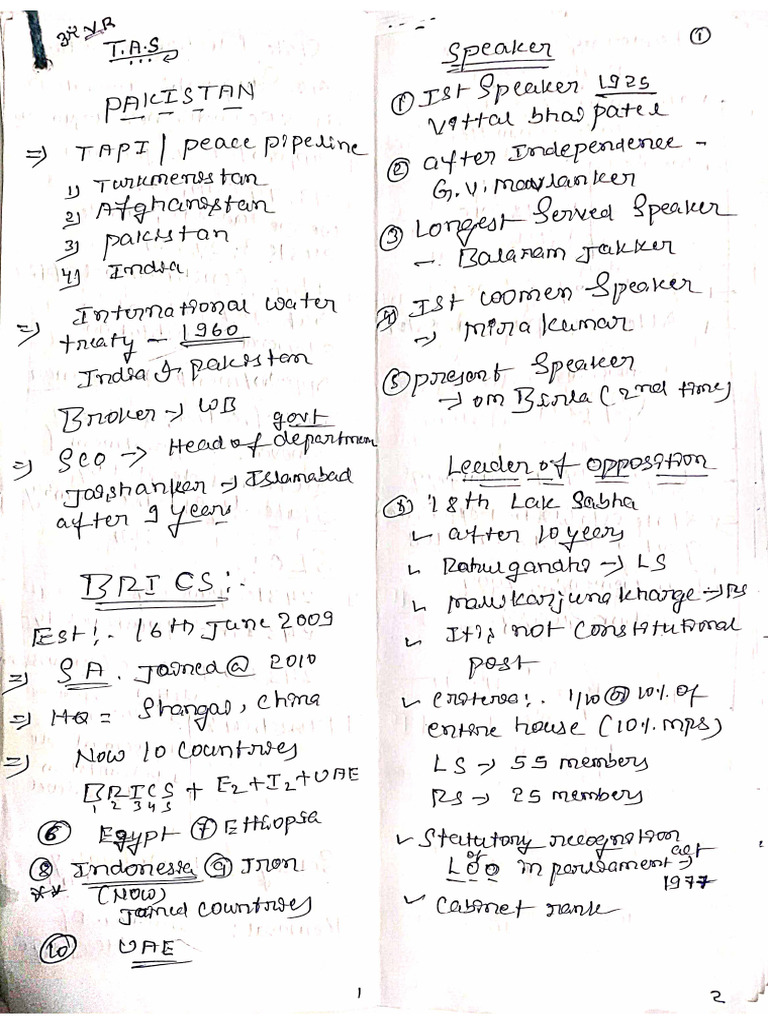 T.A.S
PAKISTAN
=> TAPI / peace pipeline
1) Turkmenistan
2) Afghanistan
3) pakistan
4) India
=> International water
treaty - 1960
India & pakistan
Broker -> WB
govt
=> SCO -> Head of department
Jaishanker -> Islamabad
after 9 years
BRICS:-
Est:- 16th June 2009
=> SA. Joined @ 2010
=> HQ = Shangai, China
=> Now 10 countries
BRICS + E2 + I2 + UAE
1 2 3 4 5
⑥ Egypt ⑦ Ethiopia
⑧ Indonesia ⑨ Iran
** (Now)
Joined countries
⑩ UAE
1
①
Speaker
① Ist Speaker 1925
Vittal bhai patel
② after Independence -
G.V. mavlanker
③ Longest Served Speaker
- Balaram Jakker
④ Ist woomen Speaker
-> Mira kumar
⑤ present Speaker
-> om Birla (2nd time)
Leader of opposation
18th Lak Sabha
✓ after 10 years
✓ Rahul gandhi -> LS
✓ Mallikarjuna kharge -> RS
✓ It is not constitutional
post
✓ criteria:. 1/10 @ 10% of
entire house (10% mps)
LS -> 55 members
RS -> 25 members
✓ Statutory recognition
of LOO in parliament act ->
1977
✓ cabinet rank
2